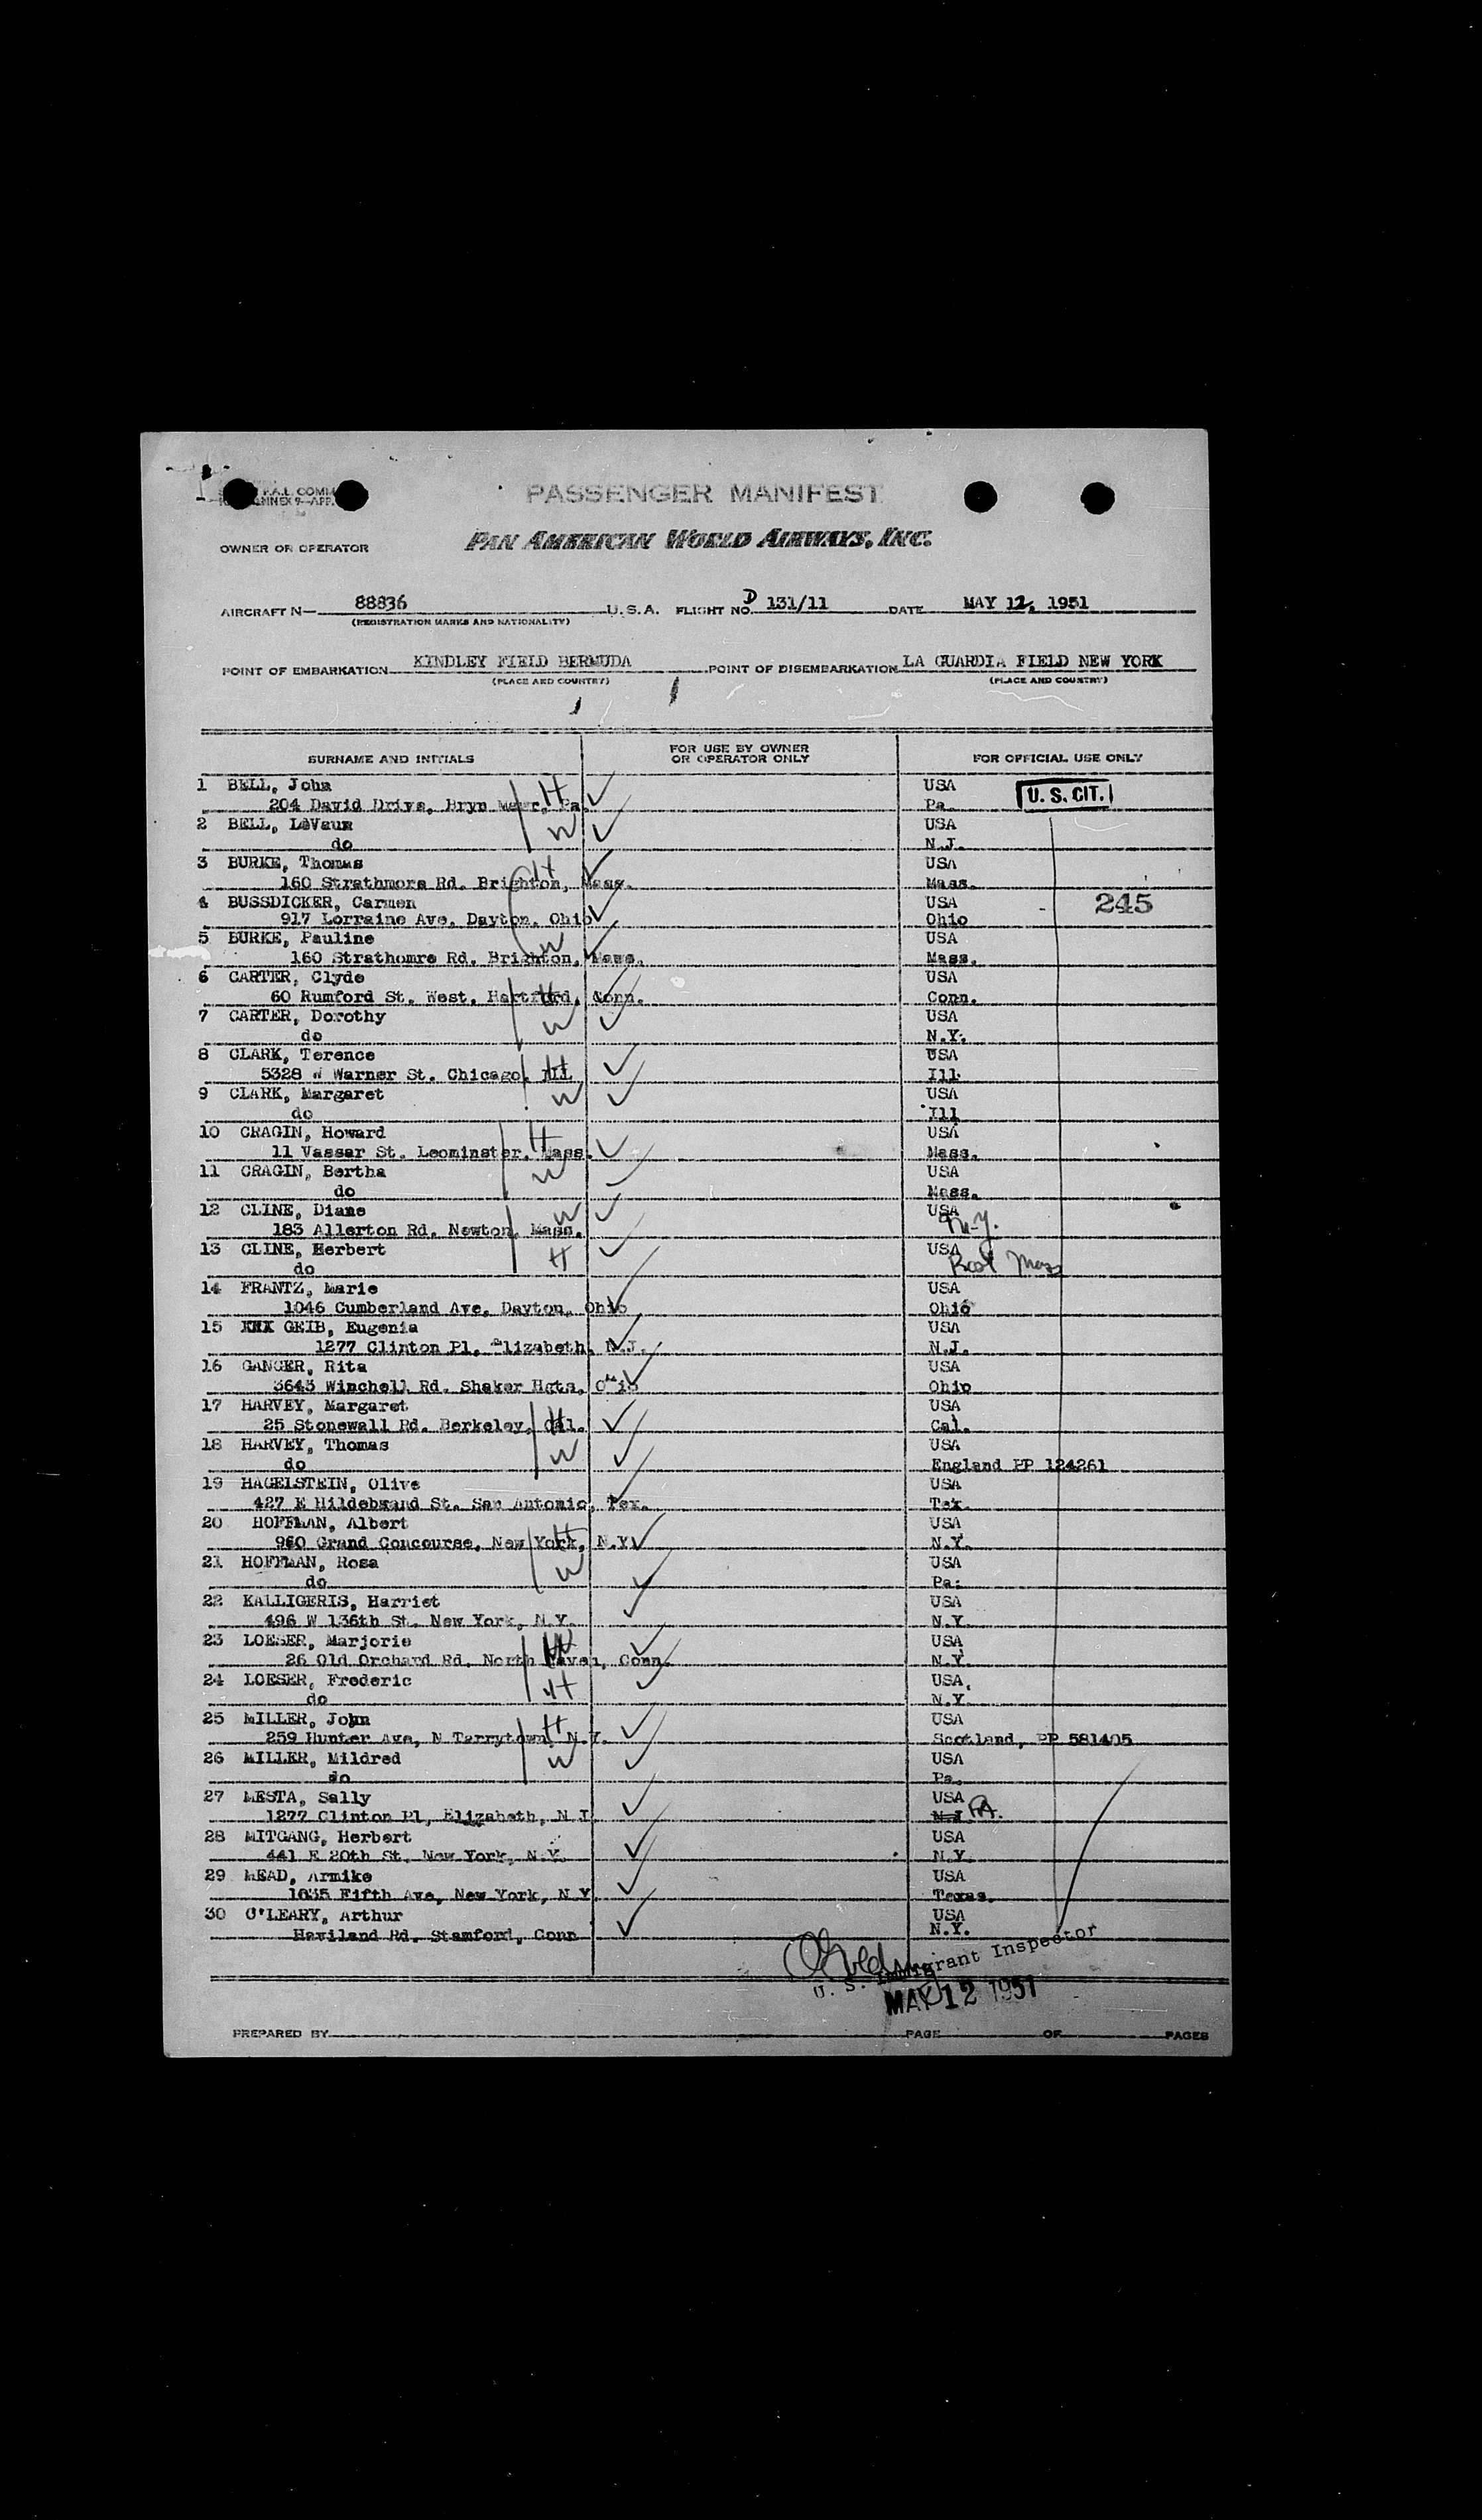 P.A.L. COMM
ANNEX 9—APP.
PASSENGER MANIFEST
OWNER OR OPERATOR PAN AMERICAN WORLD AIRWAYS, INC.
AIRCRAFT N— 88836 U.S.A. FLIGHT NO. D 131/11 DATE MAY 12, 1951
(REGISTRATION MARKS AND NATIONALITY)
POINT OF EMBARKATION KINDLEY FIELD BERMUDA POINT OF DISEMBARKATION LA GUARDIA FIELD NEW YORK
(PLACE AND COUNTRY) (PLACE AND COUNTRY)
SURNAME AND INITIALS FOR USE BY OWNER OR OPERATOR ONLY FOR OFFICIAL USE ONLY
1 BELL, John H USA U. S. CIT.
204 David Drive, Bryn Mawr, Pa. Pa.
2 BELL, LaVaun W USA
do N.J.
3 BURKE, Thomas H USA
160 Strathmore Rd. Brighton, Mass. Mass.
4 BUSSDICKER, Carmen USA 245
917 Lorraine Ave. Dayton, Ohio Ohio
5 BURKE, Pauline W USA
160 Strathomre Rd. Brighton, Mass. Mass.
6 CARTER, Clyde H USA
60 Rumford St. West. Hartford, Conn. Conn.
7 CARTER, Dorothy W USA
do N.Y.
8 CLARK, Terence H USA
5328 W Warner St. Chicago, Ill Ill
9 CLARK, Margaret W USA
do Ill
10 CRAGIN, Howard H USA
11 Vassar St. Leominster, Mass. Mass.
11 CRAGIN, Bertha W USA
do Mass.
12 CLINE, Diane W USA N.Y.
183 Allerton Rd. Newton, Mass.
13 CLINE, Herbert H USA Bost Mass
do
14 FRANTZ, Marie USA
1046 Cumberland Ave. Dayton, Ohio Ohio
15 XXX GEIB, Eugenia USA
1277 Clinton Pl. Elizabeth, N.J. N.J.
16 GANGER, Rita USA
3643 Winchell Rd. Shaker Hgts, Ohio Ohio
17 HARVEY, Margaret H USA
25 Stonewall Rd. Berkeley, Cal. Cal.
18 HARVEY, Thomas W USA
do England PP 124261
19 HAGELSTEIN, Olive USA
427 E Hildebrand St. San Antonio, Tex. Tex.
20 HOFFMAN, Albert H USA
960 Grand Concourse, New York, N.Y. N.Y.
21 HOFFMAN, Rosa W USA
do Pa.
22 KALLIGERIS, Harriet USA
496 W 136th St. New York, N.Y. N.Y.
23 LOESER, Marjorie W USA
26 Old Orchard Rd. North Haven, Conn. N.Y.
24 LOESER, Frederic H USA
do N.Y.
25 MILLER, John H USA
259 Hunter Ave, N Tarrytown, N.Y. Scotland, PP 581405
26 MILLER, Mildred W USA
do Pa.
27 MESTA, Sally USA
1277 Clinton Pl, Elizabeth, N J N J PA.
28 MITGANG, Herbert USA
441 E 20th St. New York, N.Y. N.Y.
29 MEAD, Armike USA
1035 Fifth Ave, New York, N.Y Texas.
30 O'LEARY, Arthur USA
Haviland Rd. Stamford, Conn N.Y.
U. S. Immigrant Inspector
MAY 12 1951
PREPARED BY PAGE OF PAGES